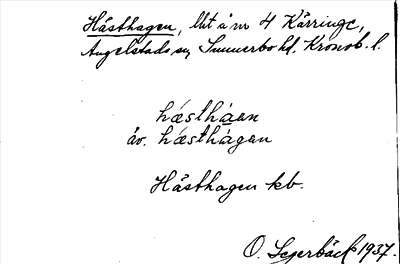 Hästhagen, lht å nr 4 Kärringe,
Angelstads sn, Sunnerbo hd. Kronob. l.
hǽsthá̱an
äv. hǽsthágan
Hästhagen kb.
O. Segerbäck 1937.